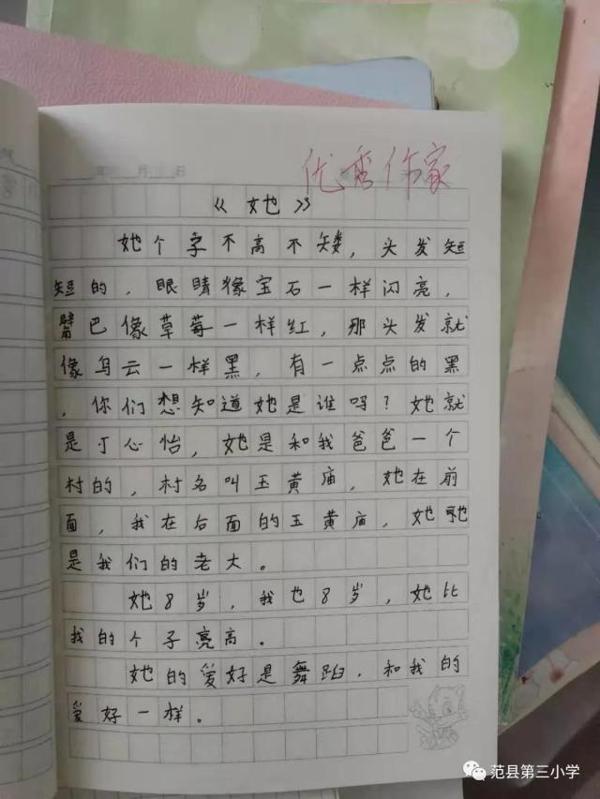 优秀作家
年 月 日
《她》
她个字不高不矮，头发短
短的，眼睛像宝石一样闪亮，
嘴巴像草莓一样红，那头发就
像乌云一样黑，有一点点的黑
，你们想知道她是谁吗？她就
是丁心怡，她是和我爸爸一个
村的，村名叫玉黄庙，她在前
面，我在后面的玉黄庙，她
是我们的老大。
她8岁，我也8岁，她比
我的个子亮高。
她的爱好是舞蹈，和我的
爱好一样。
范县第三小学